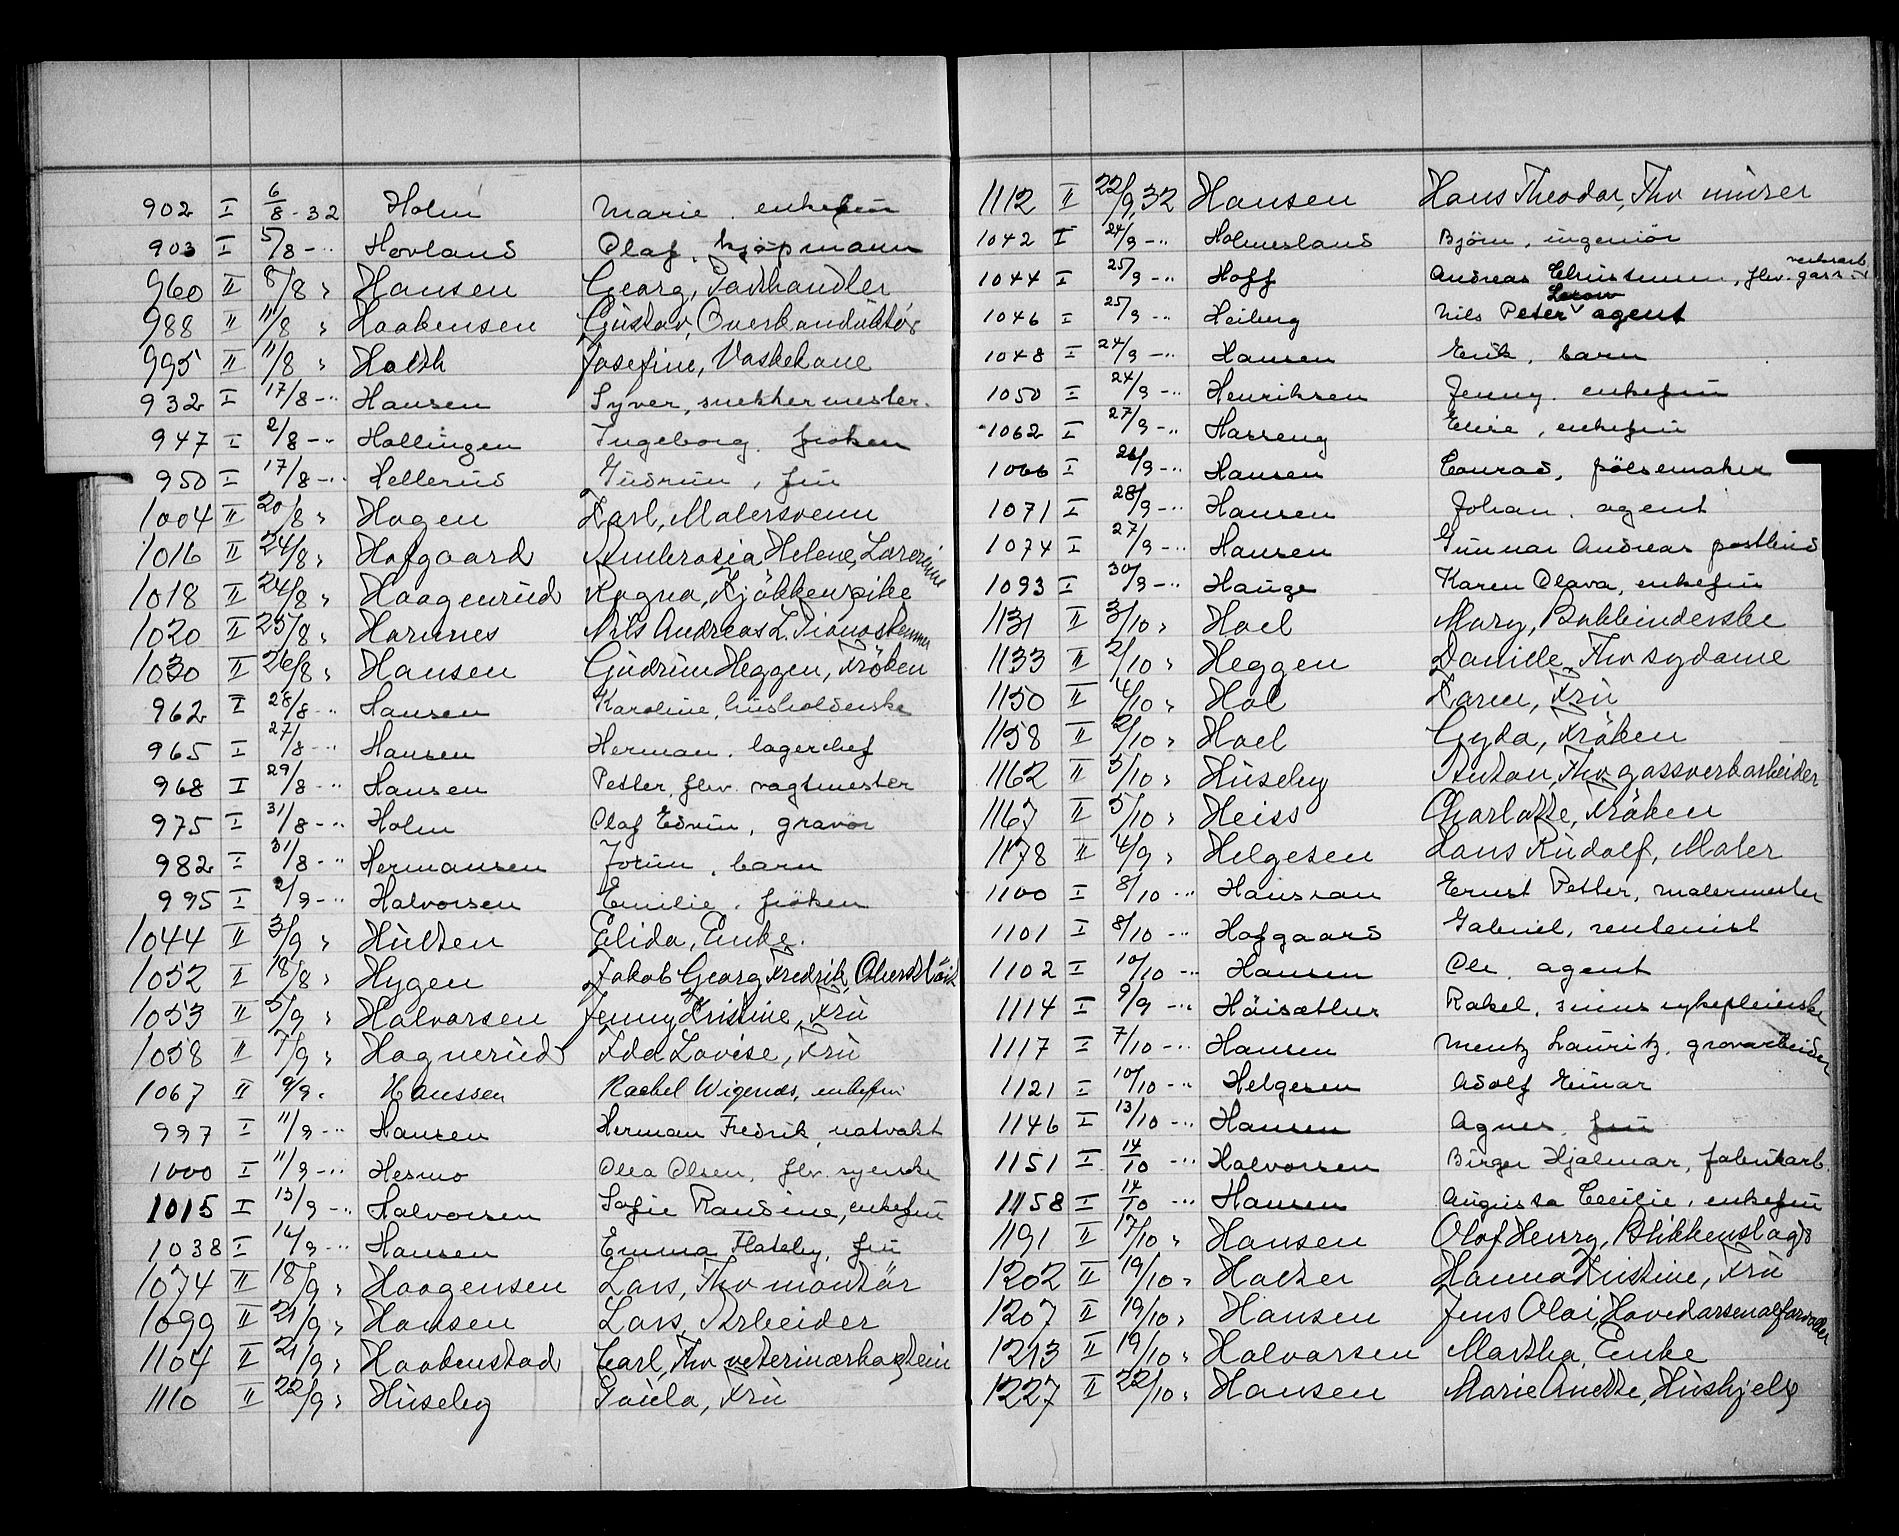 902 I 6/8-32 Holm Marie, enkefru
903 I 5/8 -" Hovland Olaf, kjøpmann
960 II 8/8 " Hansen Georg,
988 II 11/8 " Haakensen Gustav, Overkonduktør
995 II 11/8 " Holth Josefine, Vaskekone
932 I 17/8 -" Hansen Syver, snekkermester.
947 I 2/8 -" Hallingen Ingeborg, frøken
950 I 17/8 -" Hellerud Gudrun, fru
1004 II 20/8 " Hagen Karl, Malersvenn
1016 II 24/8 " Hofgaard Ambrosia Helene,
1018 II 24/8 " Haagenrud Ragna, Kjøkkenpike
1020 II 25/8 " Harnnes Nils Andreas L. Pianostemmer
1030 II 26/8 " Hansen Gudrun Heggen, Frøken
962 I 28/8 -" Hansen Karoline, husholderske
965 I 27/8 -" Hansen Herman, lagerchef
968 I 29/8 -" Hansen Petter, fhv. vagtmester
975 I 31/8 -" Holm Olaf Edvin, gravør
982 I 31/8 -" Hermansen Jorun, barn
995 I 2/9 -" Halvorsen Emilie, frøken
1044 II 3/9 " Hulten Elida, Enke.
1052 II 18/8 " Hygen Jakob Georg Fredrik, Oberstløit
1053 II 5/9 " Halvorsen Jenny Kristine, Fru
1058 II 7/9 " Hagnerud Ida Lovise, Fru
1067 II 9/9 " Hanssen Rachel Wigends, enkefru
997 I 11/9 -" Hansen Herman Fredrik, natvakt
1000 I 11/9 -" Hesmo Olea Olsen, fhv. syerske
1015 I 13/9 -" Halvorsen Sofie Randine, enkefru
1038 I 14/9 -" Hansen Emma Flateby, fru
1074 II 18/9 " Haagensen Lars, Fhv montør
1099 II 21/9 " Hansen Lars, Arbeider
1104 II 21/9 " Haakenstad Carl, Fhv veterinærkaptein
1110 II 22/9 " Huseby Paula, Fru
1112 II 22/9 32 Hansen Hans Theodor, Fhv murer
1042 I 24/9 -" Holmesland Bjørn, ingeniør
1044 I 25/9 -" Hoff Andreas Christensen, fhv. gass
1046 I 25/9 -" Heiberg Nils Peter agent
1048 I 24/9 -" Hansen Erik, barn
1050 I 24/9 -" Henriksen Jenny, enkefru
1062 I 27/9 -" Hasseng Elise, enkefru
1066 I 26/9 -" Hansen Conrad, pølsemaker
1071 I 28/9 -" Hansen Johan, agent
1074 I 27/9 -" Hansen Gunnar Andreas postbud
1093 I 30/9 -" Hauge Karen Olava, enkefru
1131 II 3/10 " Hoel Mary, Bokbinderske
1133 II 2/10 " Heggen Danille, Fhv sydame
1150 II 4/10 " Hol Karen, Fru
1158 II 2/10 " Hoel Gyda, Frøken
1162 II 3/10 " Huseby Anton, Fhv gassverkarbeider
1167 II 5/10 " Heiss Charlotte, Frøken
1178 II 4/9 " Helgesen Hans Rudolf, Maler
1100 I 8/10 -" Haussan Ernst Petter, malermester
1101 I 8/10 -" Hofgaard Gabriel, rentenist
1102 I 10/10 -" Hansen Ole, agent
1114 I 9/9 -" Høisæther Rakel, sykepleierske
1117 I 7/10 -" Hansen Mentz Lauritz, gravarbeider
1121 I 10/10 -" Helgesen Adolf Einar
1146 I 13/10 -" Hansen Agnes, fru
1151 I 14/10 -" Halvorsen Birger Hjalmar, fabrikarb.
1158 I 14/10 -" Hansen Augusta Cecilie, enkefru
1191 II 17/10 " Hansen Olof Henry, Blikkenslager
1202 II 19/10 " Holter Hanna Kristine, Fru
1207 II 19/10 " Hansen Jens Olai, Hovedarsenalforvalter
1213 II 19/10 " Halvorsen Martha, Enke
1227 II 22/10 " Hansen Marie Anette, Hushjelp